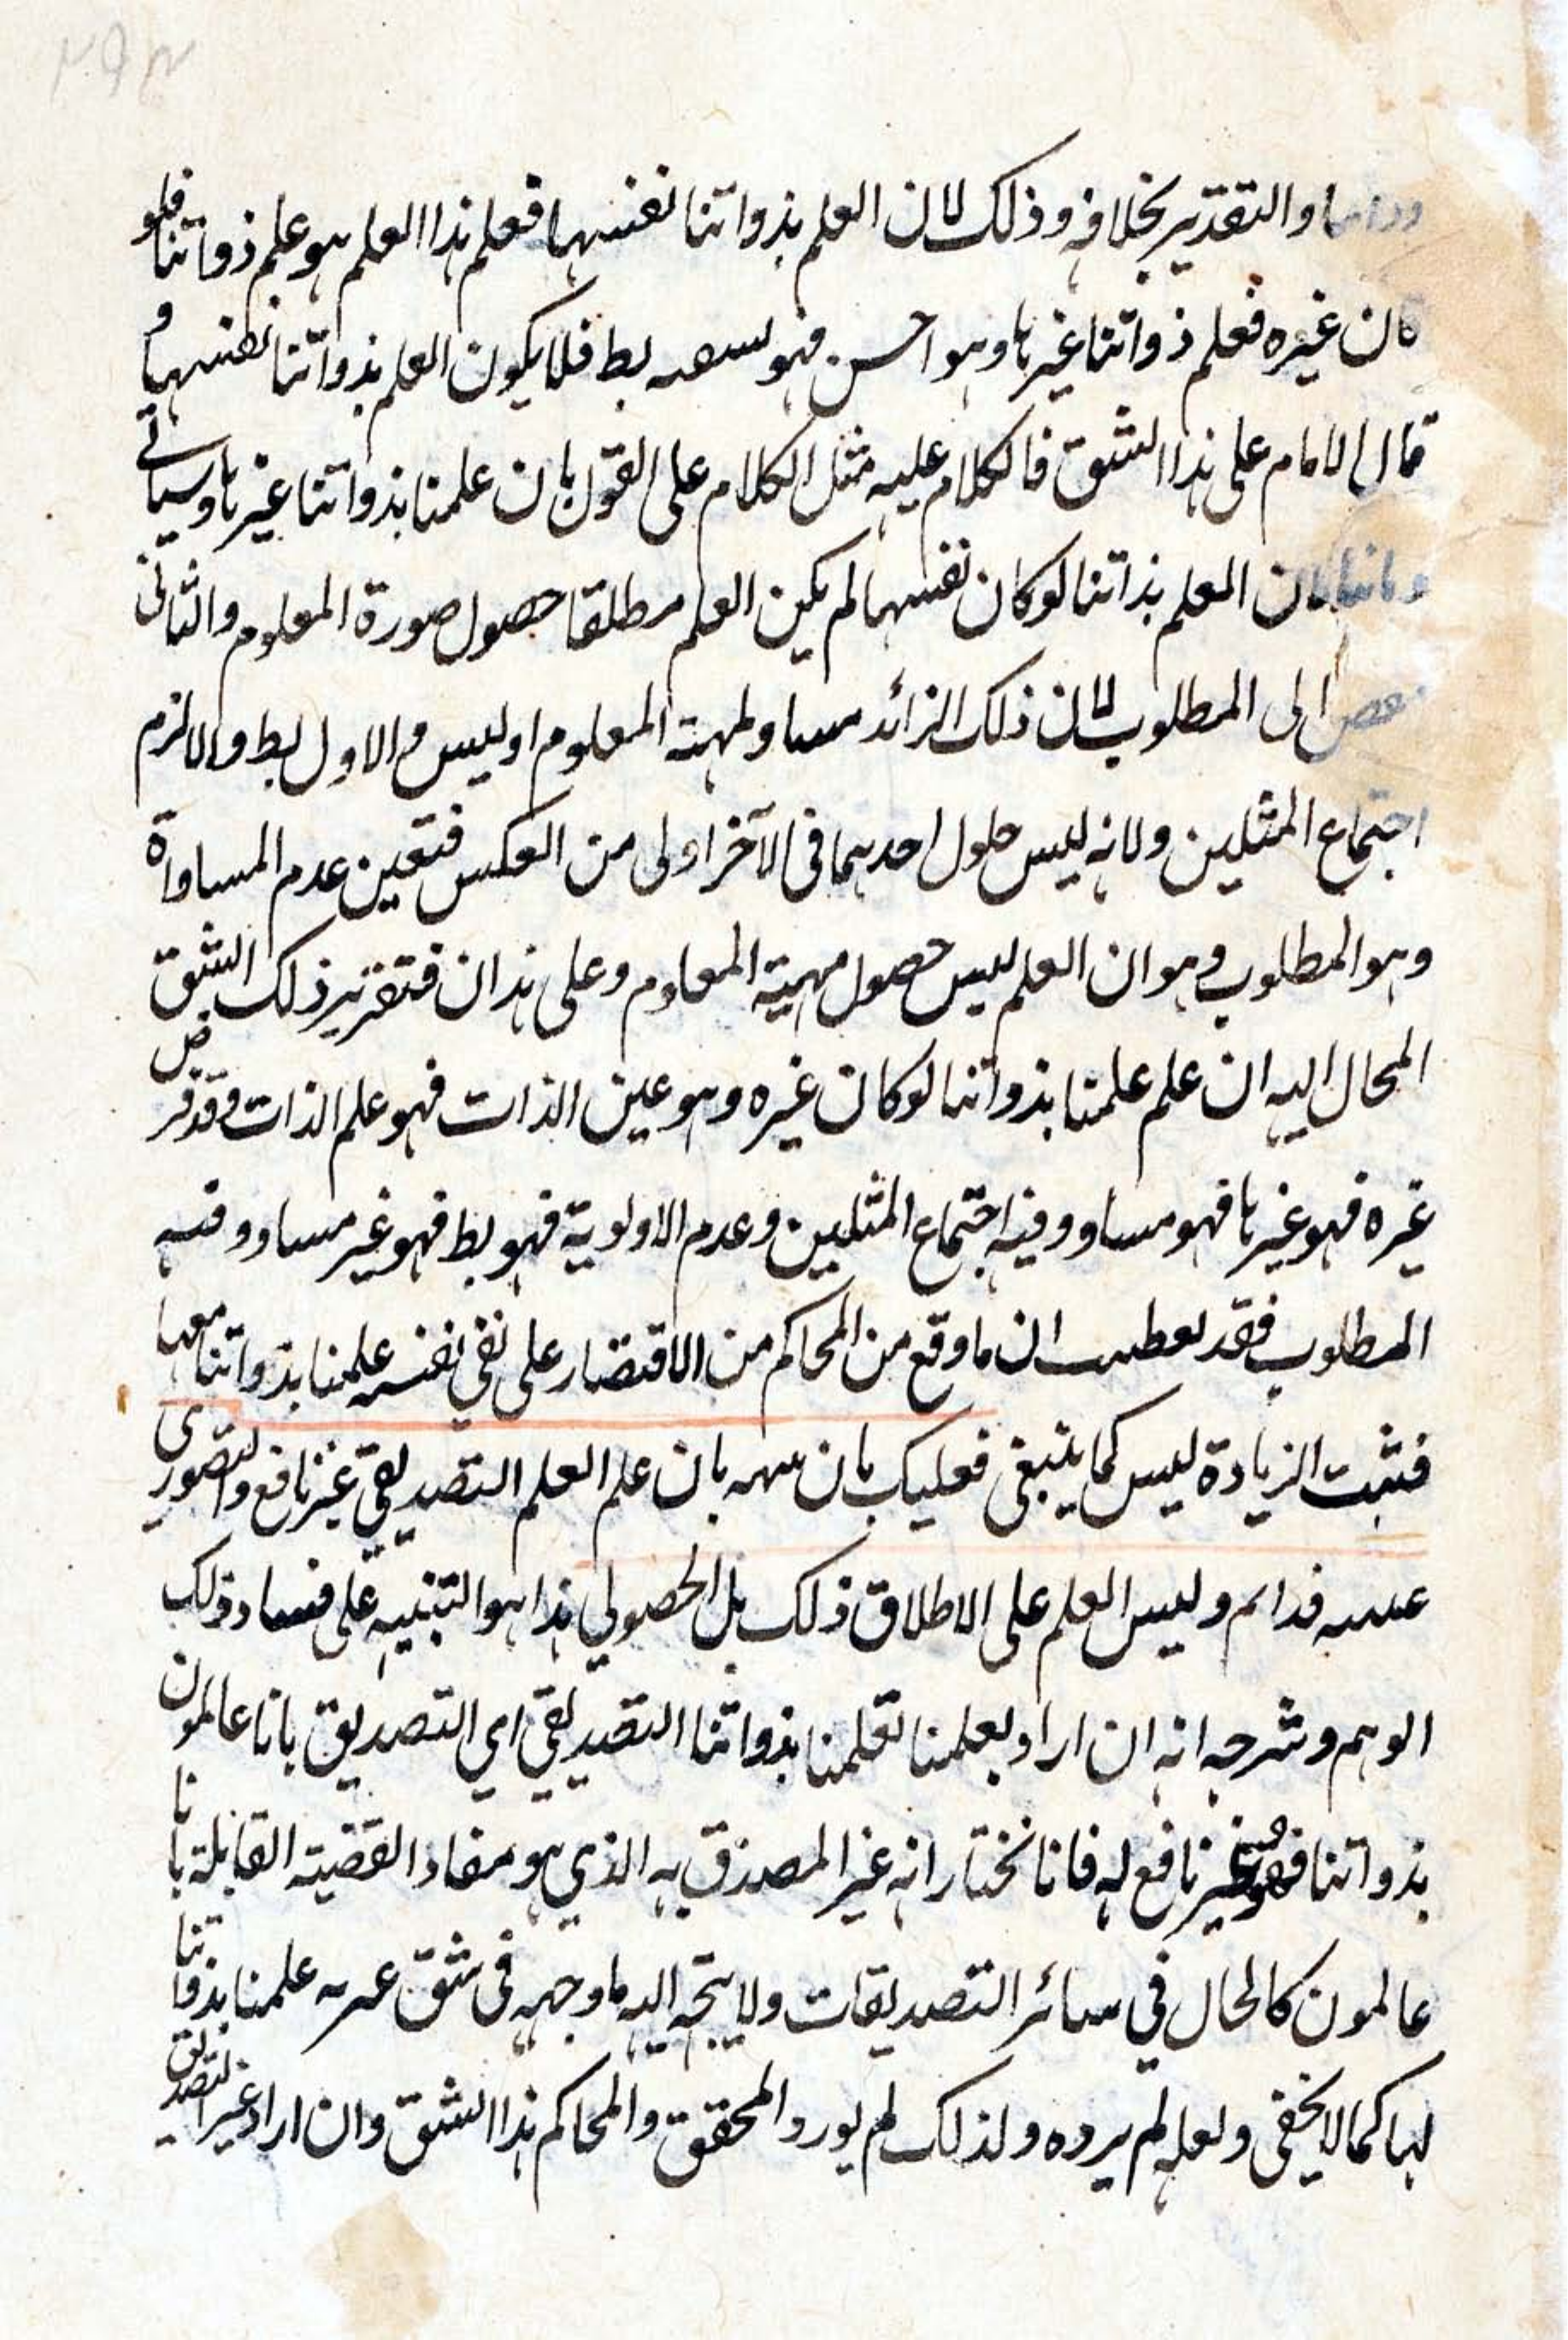 والتقدير بخلافه وذلك لان العلم بذواتنا نفسها فعلم هذا العلم هو علم ذواتنا فلو
كان غيره فعلم ذواتنا غيرها وهو احسن فهو بط فلا يكون العلم بذواتنا نفسها و
قال الامام على هذا الشق فالكلام عليه مثل الكلام على القول بان علمنا بذواتنا غيرها وسياتي
العلم بذاتنا لو كان نفسها لم يكن العلم مطلقا حصول صورة المعلوم والثاني
الى المطلوب لان ذلك الزائد مساو لمهية المعلوم او ليس و الاول بط والا لزم
اجتماع المثلين ولانه ليس حلول احدهما في الآخر اولى من العكس فتعين عدم المساواة
وهو المطلوب وهو ان العلم ليس حصول مهية المعلوم وعلى هذا ان فتقرير ذلك الشق
المحال اليه ان علم علمنا بذواتنا لو كان غيره وهو عين الذات فهو علم الذات وقد فرض
غيره فهو غيرها فهو مساو وفيه اجتماع المثلين وعدم الاولوية فهو بط فهو غير مساو وفيه
المطلوب فقد ان ما وقع من المحاكم من الاقتصار على نفي نفسية علمنا بذواتنا معها
فثبت الزيادة ليس كما ينبغي فعليك بان بان علم العلم التصديقي غير نافع والتصوري
وليس العلم على الاطلاق ذلك بل الحصولي هذا هو التنبيه على فساد ذلك
الوهم وشرحه انه ان اراد بعلمنا لعلمنا بذواتنا التصديقي اي التصديق بانا عالمون
بذواتنا فهو غير نافع له فانا نختار انه غير المصدق به الذي هو مفاد القضية القائلة بانا
عالمون كالحال في سائر التصديقات ولا يتجه اليه ما وجهه في شق علمنا بذواتنا
لها كما لا يخفى ولعله لم يرده ولذلك لم يورد المحقق والمحاكم هذا الشق وان اراد غير التصديق